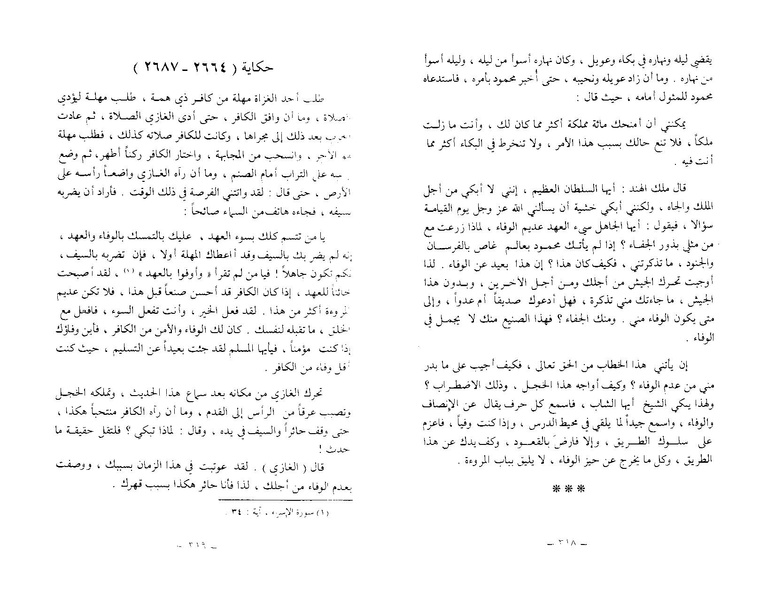 يقضي ليله ونهاره في بكاء وعويل ، وكان نهاره أسوأ من ليله ، وليله أسوأ
من نهاره . وما أن زاد عويله ونحيبه ، حتى أخبر محمود بأمره ، فاستدعاه
محمود للمثول أمامه ، حيث قال :
يمكنني أن أمنحك مائة مملكة أكثر مما كان لك ، وأنت ما زلت
ملكاً ، فلا تنع حالك بسبب هذا الأمر ، ولا تنخرط في البكاء أكثر مما
أنت فيه .
قال ملك الهند : أيها السلطان العظيم ، إنني لا أبكي من أجل
الملك والجاه ، ولكنني أبكي خشية أن يسألني الله عز وجل يوم القيامة
سؤالا ، فيقول : أيها الجاهل سيء العهد عديم الوفاء ، لماذا زرعت مع
من مثلي بذور الجفاء ؟ إذا لم يأتك محمود بعالم غاص بالفرسان
والجنود ، ما تذكرتني ، فكيف كان هذا ؟ إن هذا بعيد عن الوفاء . لذا
أوجبت تحرك الجيش من أجلك ومن أجل الآخرين ، وبدون هذا
الجيش ، ما جاءتك مني تذكرة ، فهل أدعوك صديقاً أم عدواً ، وإلى
متى يكون الوفاء مني . ومنك الجفاء ؟ فهذا الصنيع منك لا يجمل في
الوفاء .
إن يأتني هذا الخطاب من الحق تعالى ، فكيف أجيب على ما بدر
مني من عدم الوفاء ؟ وكيف أواجه هذا الخجل ، وذلك الاضطراب ؟
ولهذا يبكي الشيخ أيها الشاب ، فاسمع كل حرف يقال عن الإنصاف
والوفاء ، واسمع جيداً لما يلقي في محيط الدرس ، وإذا كنت وفياً ، فاعزم
على سلوك الطريق ، وإلا فارض بالقعود ، وكف يدك عن هذا
الطريق ، وكل ما يخرج عن حيز الوفاء ، لا يليق بباب المروءة .
***
ـ ٣١٨ ـ
حكاية ( ٢٦٦٤ ـ ٢٦٨٧ )
طلب أحد الغزاة مهلة من كافر ذي همة ، طلب مهلة ليؤدي
الصلاة ، وما أن وافق الكافر ، حتى أدى الغازي الصلاة ، ثم عادت
الحرب بعد ذلك إلى مجراها ، وكانت للكافر صلاته كذلك ، فطلب مهلة
هو الآخر ، وانسحب من المجابهة ، واختار الكافر ركناً أطهر، ثم وضع
رأسه على التراب أمام الصنم ، وما أن رآه الغازي واضعاً رأسه على
الأرض ، حتى قال : لقد واتتني الفرصة في ذلك الوقت . فأراد أن يضربه
بسيفه ، فجاءه هاتف من السماء صائحاً :
يا من تتسم كلك بسوء العهد ، عليك بالتمسك بالوفاء والعهد ،
إنه لم يضربك بالسيف وقد أعطاك المهلة أولا ، فإن تضربه بالسيف ،
لكم تكون جاهلاً ! فيا من لم تقرأ « وأوفوا بالعهد » (١) ، لقد أصبحت
خائناً للعهد ، إذا كان الكافر قد أحسن صنعاً قبل هذا ، فلا تكن عديم
المروءة أكثر من هذا . لقد فعل الخير ، وأنت تفعل السوء ، فافعل مع
الخلق ، ما تقبله لنفسك . كان لك الوفاء والأمن من الكافر ، فأين وفاؤك
إذا كنت مؤمناً ، فيأيها المسلم لقد جئت بعيداً عن التسليم ، حيث كنت
أقل وفاء من الكافر .
تحرك الغازي من مكانه بعد سماع هذا الحديث ، وتملكه الخجل
وتصبب عرقاً من الرأس إلى القدم ، وما أن رآه الكافر منتحباً هكذا ،
حتى وقف حائراً والسيف في يده ، وقال : لماذا تبكي ؟ فلتقل حقيقة ما
حدث !
قال ( الغازي ) . لقد عوتبت في هذا الزمان بسببك ، ووصفت
بعدم الوفاء من أجلك ، لذا فأنا حائر هكذا بسبب قهرك .
(١) سورة الإسراء ، آية : ٣٤ .
ـ ٣١٩ ـ